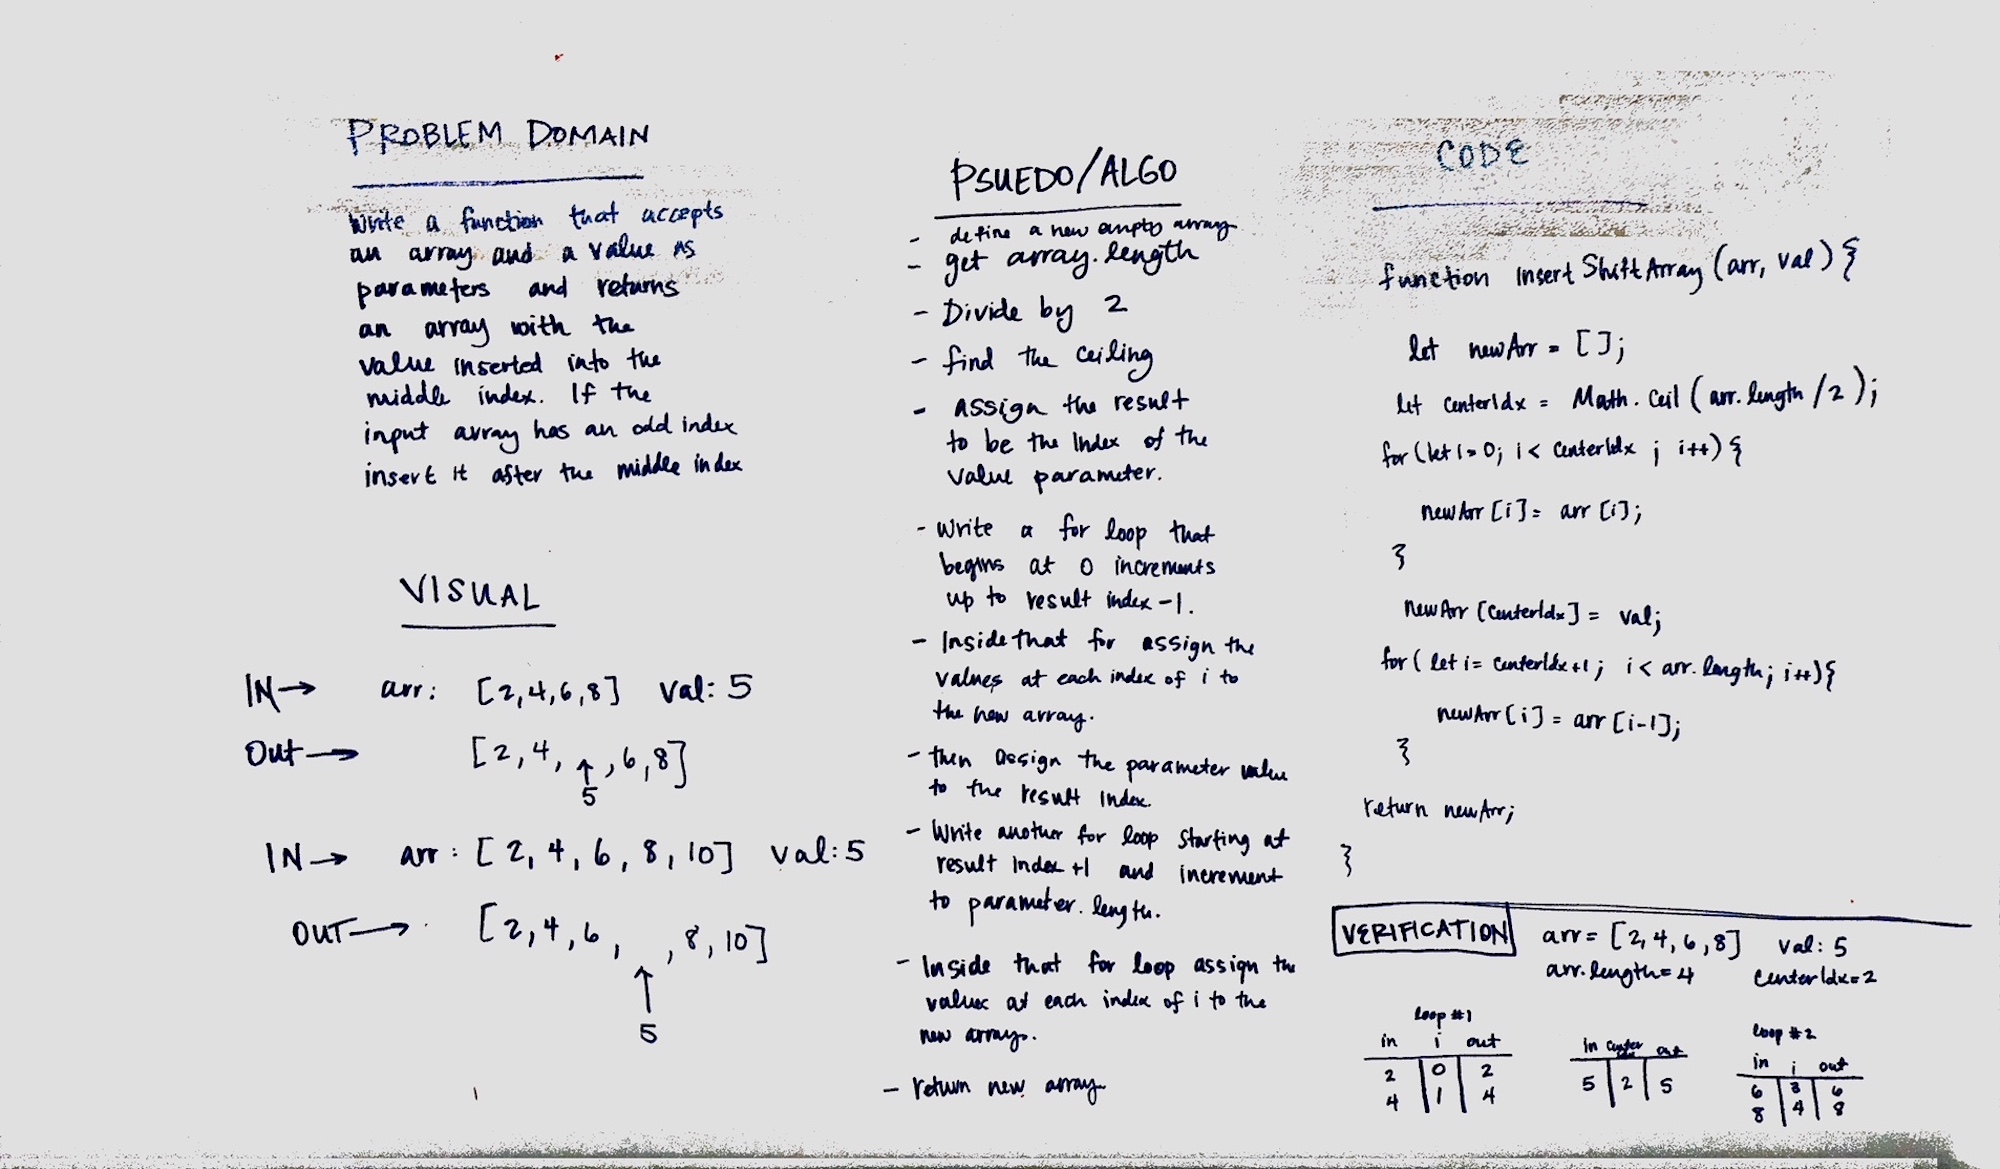 PROBLEM DOMAIN
Write a function that accepts
an array and a value as
parameters and returns
an array with the
value inserted into the
middle index. If the
input array has an odd index
insert it after the middle index
VISUAL
IN→ arr: [2,4,6,8] val: 5
Out→ [2,4, ↑ ,6,8]
5
IN→ arr: [2,4,6,8,10] val:5
OUT→ [2,4,6, ,8,10]
↑
5
PSUEDO/ALGO
- define a new empty array
- get array.length
- Divide by 2
- find the ceiling
- Assign the result
to be the Index of the
value parameter.
- Write a for loop that
begins at 0 increments
up to result index -1.
- Inside that for assign the
values at each index of i to
the new array.
- then assign the parameter value
to the result Index.
- Write another for loop starting at
result index +1 and increment
to parameter.length.
- Inside that for loop assign the
values at each index of i to the
new array.
- return new array
CODE
function insertShiftArray (arr, val) {
let newArr = [];
let centerIdx = Math.Ceil (arr.length /2);
for (let i=0; i < centerIdx ; i++) {
newArr [i] = arr [i];
}
newArr [centerIdx] = val;
for ( let i= centerIdx +1; i < arr.length; i++) {
newArr [i] = arr [i-1];
}
return newArr;
}
VERIFICATION arr = [2,4,6,8] val: 5
arr.length=4 centerIdx=2
loop #1
in i out
2 0 2
4 1 4
in center out
5 2 5
loop #2
in i out
6 3 6
8 4 8